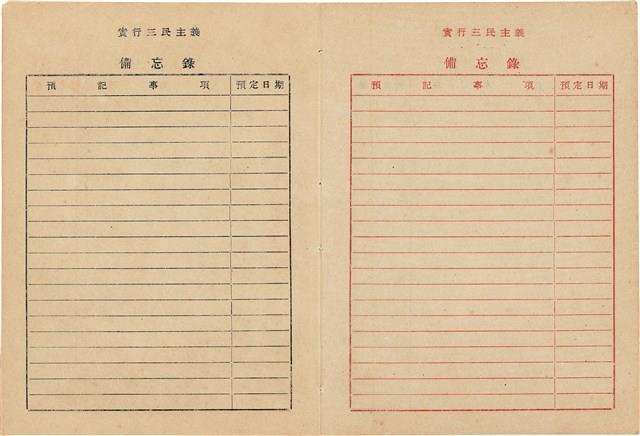 實行三民主義
備忘錄
預記事項 預定日期
實行三民主義
備忘錄
預記事項 預定日期